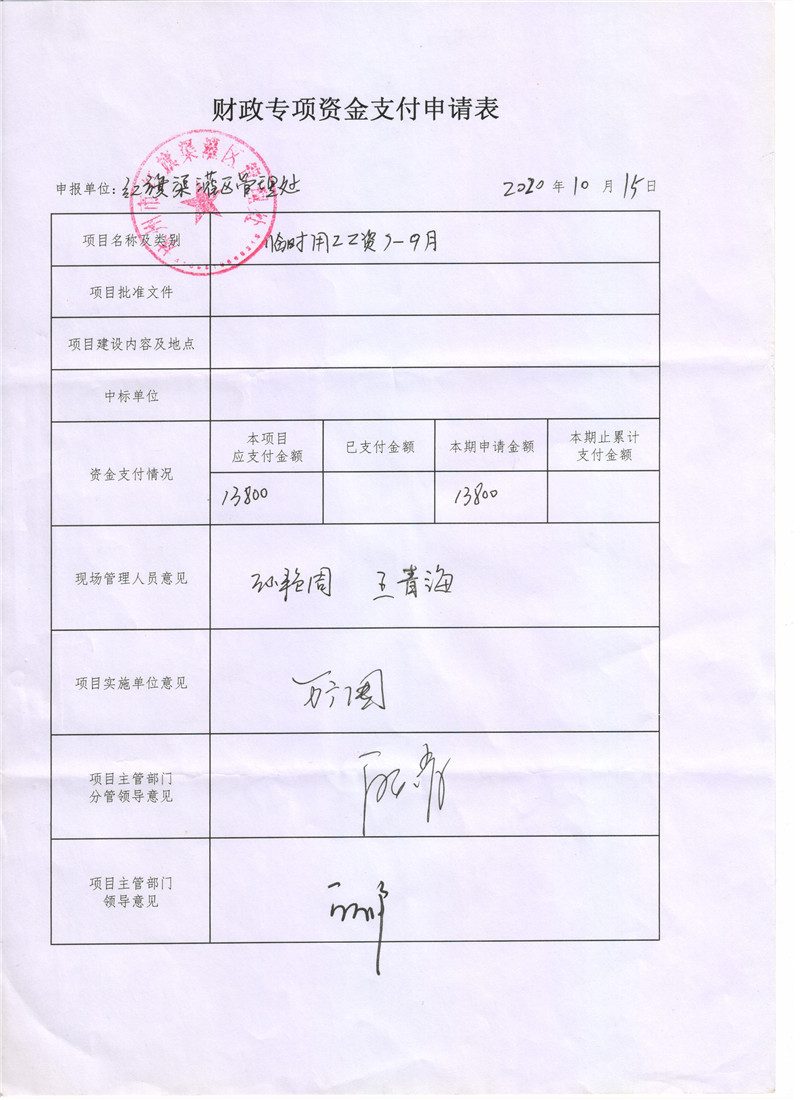 财政专项资金支付申请表
申报单位:红旗渠灌区管理处 2020年10月15日
项目名称及类别 临时用工工资7-9月
项目批准文件
项目建设内容及地点
中标单位
资金支付情况
本项目应支付金额 已支付金额 本期申请金额 本期止累计支付金额
13800 13800
现场管理人员意见 孙艳周 王青海
项目实施单位意见
项目主管部门
分管领导意见
项目主管部门
领导意见